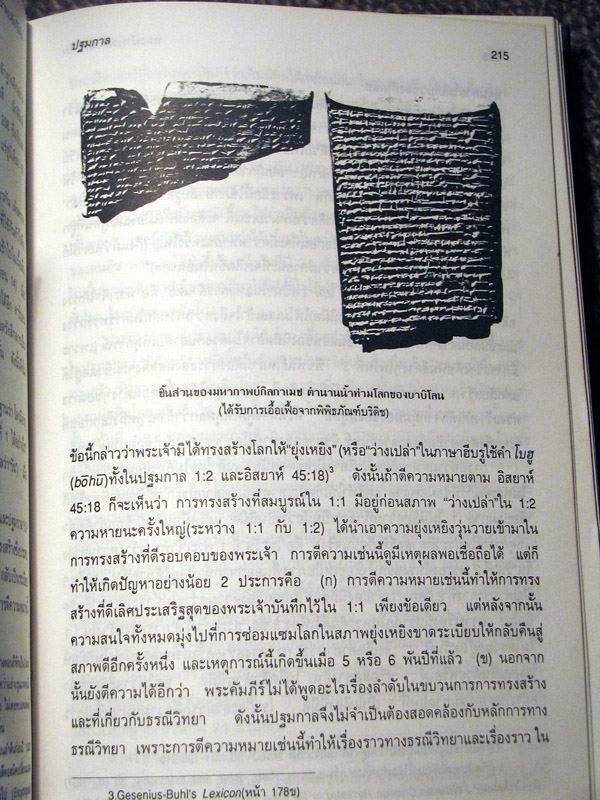 ปฐมกาล
215
ชิ้นส่วนของมหากาพย์กิลกาเมช ตำนานน้ำท่วมโลกของบาบิโลน
(ได้รับการเอื้อเฟื้อจากพิพิธภัณฑ์บริติช)
ข้อนี้กล่าวว่าพระเจ้ามิได้ทรงสร้างโลกให้“ยุ่งเหยิง”(หรือ“ว่างเปล่า”ในภาษาฮีบรูใช้คำ โบฮู
(bōhū)ทั้งในปฐมกาล 1:2 และอิสยาห์ 45:18)³ ดังนั้นถ้าตีความหมายตาม อิสยาห์
45:18 ก็จะเห็นว่า การทรงสร้างที่สมบูรณ์ใน 1:1 มีอยู่ก่อนสภาพ “ว่างเปล่า”ใน 1:2
ความหายนะครั้งใหญ่(ระหว่าง 1:1 กับ 1:2) ได้นำเอาความยุ่งเหยิงวุ่นวายเข้ามาใน
การทรงสร้างที่ดีรอบคอบของพระเจ้า การตีความเช่นนี้ดูมีเหตุผลพอเชื่อถือได้ แต่ก็
ทำให้เกิดปัญหาอย่างน้อย 2 ประการคือ (ก) การตีความหมายเช่นนี้ทำให้การทรง
สร้างที่ดีเลิศประเสริฐสุดของพระเจ้าบันทึกไว้ใน 1:1 เพียงข้อเดียว แต่หลังจากนั้น
ความสนใจทั้งหมดมุ่งไปที่การซ่อมแซมโลกในสภาพยุ่งเหยิงขาดระเบียบให้กลับคืนสู่
สภาพดีอีกครั้งหนึ่ง และเหตุการณ์นี้เกิดขึ้นเมื่อ 5 หรือ 6 พันปีที่แล้ว (ข) นอกจาก
นั้นยังตีความได้อีกว่า พระคัมภีร์ไม่ได้พูดอะไรเรื่องลำดับในขบวนการการทรงสร้าง
และที่เกี่ยวกับธรณีวิทยา ดังนั้นปฐมกาลจึงไม่จำเป็นต้องสอดคล้องกับหลักการทาง
ธรณีวิทยา เพราะการตีความหมายเช่นนี้ทำให้เรื่องราวทางธรณีวิทยาและเรื่องราว ใน
3.Gesenius-Buhl's Lexicon(หน้า 178ข)